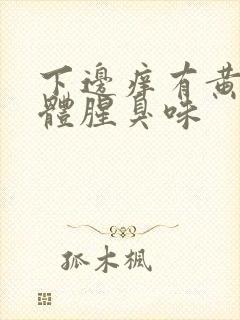 下邊痒有黃
體腥臭味
孤木楓